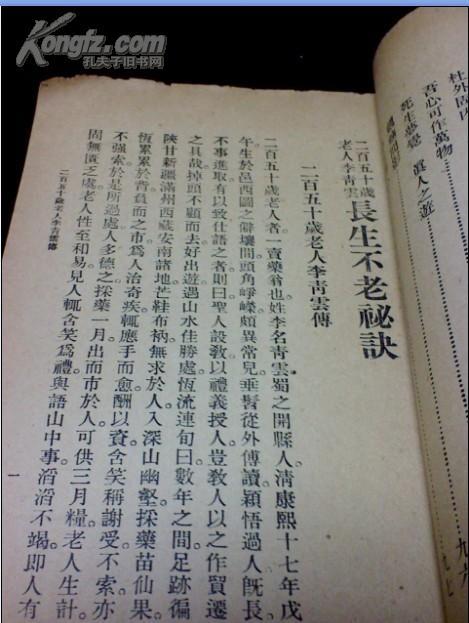 Kongfz.com
孔夫子旧书网
杜外園內
吾心可作萬物
死生夢覺 眞人之遊
九六
九七
二百五十歲
老人李靑雲 長生不老祕訣
二百五十歲老人李靑雲傳
二百五十歲老人者。一賣藥翁也。姓李名靑雲。蜀之開縣人。淸康熙十七年戊
午。生於邑西圖之僻壤間。頭角崢嶸。頗異常兒。垂髫從外傅讀。穎悟過人。旣長。
不事進取。有以致仕語之者。則曰聖人設敎。以禮義授人。豈敎人以之作貿遷
之具哉。掉頭不顧而去。好出遊。遇山水佳勝處。恆流連旬日。數年之間。足跡徧
陝甘新疆滿州西藏安南諸地。芒鞋布衲。無求於人。入深山幽壑。採藥苗仙果。
恆累累於背。負而之市。爲人治奇疾。輒應手而愈。酬以資。含笑稱謝受。不索。亦
不強索。於是所過處。人多德之。採藥一月。出而市於人。可供三月糧。老人生計。
固無匱乏處。老人性至和易。見人輒含笑爲禮。與語山中事。滔滔不竭。卽人有
二百五十歲老人李靑雲傳
一